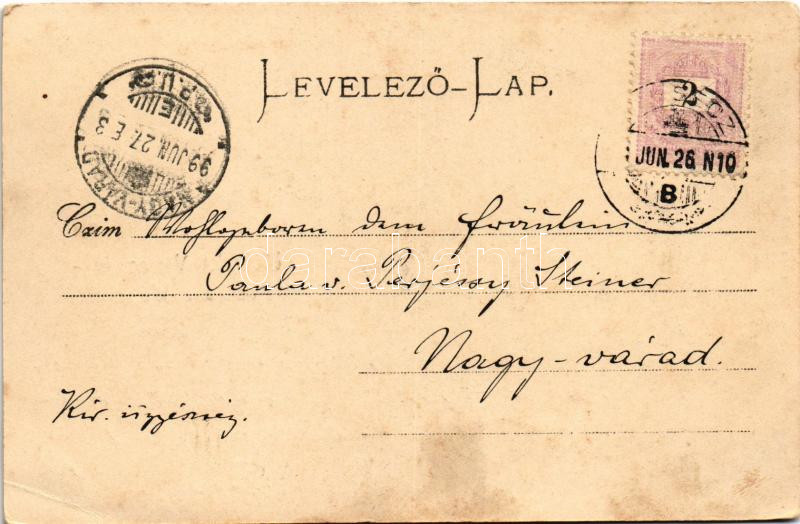 LEVELEZŐ-LAP.
2
CZ
JUN. 26. N10
B
NAGY-VÁRAD
99 JUN. 27. E. 3
P.U.
Czim Wohlgeboren dem Fräulein
Paula v. Perjéssy Steiner
Nagy-várad.
Kir. ügyészség.
darabanth